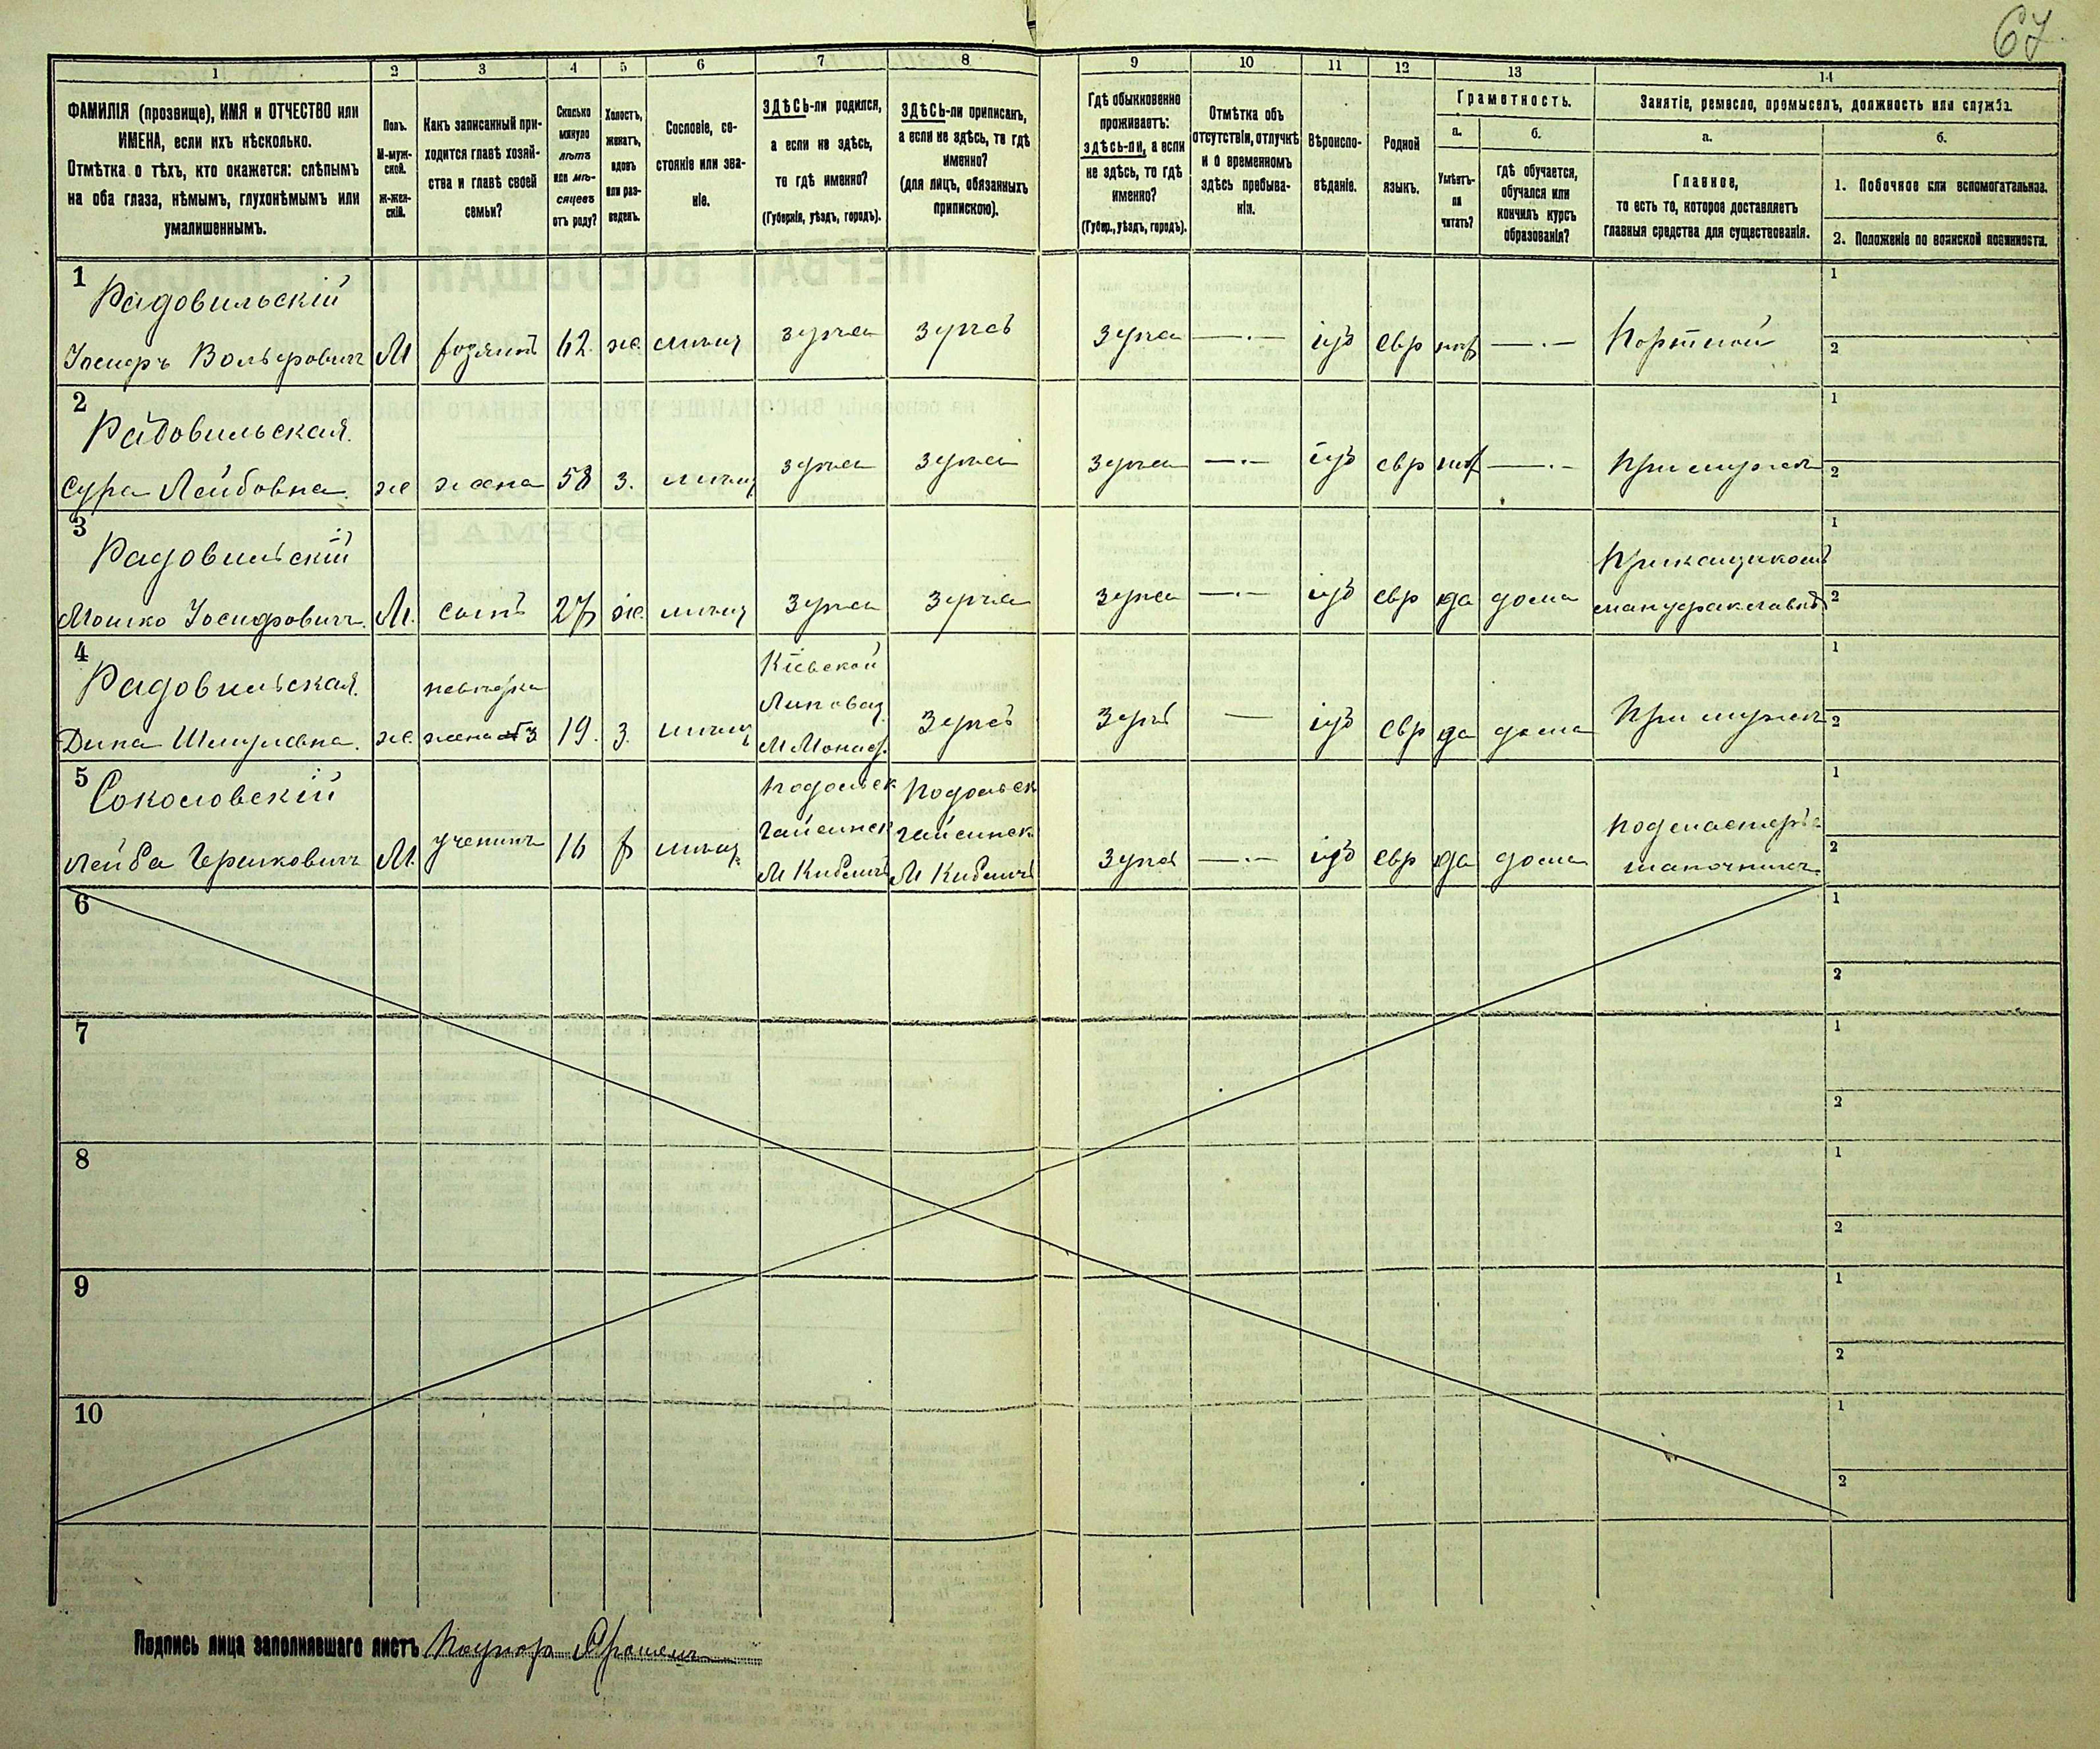 67
1
2
3
4
5
6
7
8
9
10
11
12
13
14
ФАМИЛІЯ (прозвище), ИМЯ и ОТЧЕСТВО или
ИМЕНА, если ихъ нѣсколько.
Отмѣтка о тѣхъ, кто окажется: слѣпымъ
на оба глаза, нѣмымъ, глухонѣмымъ или
умалишеннымъ.
Полъ.
М-муж-
ской.
ж-жен-
скій.
Какъ записанный при-
ходится главѣ хозяй-
ства и главѣ своей
семьи?
Сколько
минуло
лѣтъ
или мѣ-
сяцевъ
отъ роду?
Холостъ,
женатъ,
вдовъ
или раз-
веденъ.
Сословіе, со-
стояніе или зва-
ніе.
ЗДѢСЬ-ли родился,
а если не здѣсь,
то гдѣ именно?
(Губернія, уѣздъ, городъ).
ЗДѢСЬ-ли приписанъ,
а если не здѣсь, то гдѣ
именно?
(для лицъ, обязанныхъ
припискою).
Гдѣ обыкновенно
проживаетъ:
здѣсь-ли, а если
не здѣсь, то гдѣ
именно?
(Губер., уѣздъ, городъ).
Отмѣтка объ
отсутствіи, отлучкѣ
и о временномъ
здѣсь пребыва-
ніи.
Вѣроиспо-
вѣданіе.
Родной
языкъ.
Грамотность.
а.
Умѣетъ-
ли
читать?
б.
гдѣ обучается,
обучался или
кончилъ курсъ
образованія?
Занятіе, ремесло, промыселъ, должность или служба.
а.
Главное,
то есть то, которое доставляетъ
главныя средства для существованія.
б.
1. Побочное или вспомогательное.
2. Положеніе по воинской повинности.
1
Радовильскій
Іосифъ Вольфовичъ М хозяинъ 62 ж мѣщ здѣсь здѣсь здѣсь —.— іуд евр нѣт —.— Портной
1
2
2
Радовильская
Сура Лейбовна ж жена 58 з. мѣщ здѣсь здѣсь здѣсь —.— іуд евр нѣт —.— При мужѣ
1
2
3
Радовильскій
Мошко Іосифовичъ М. сынъ 27 ж мѣщ здѣсь здѣсь здѣсь —.— іуд евр да дома
Прикащикомъ
1
2
4
Радовильская
невѣстка
жена 3
Дина Шмулевна ж 19. з. мѣщ
Кіевской
Липовец
М Монаст.
здѣсь здѣсь — іуд евр да дома При мужѣ
1
2
5
Соколовскій
Лейба Гершковичъ М. ученикъ 16 х мѣщ
Подольск
Гайсинск
М Кибличъ
Подольск
Гайсинск
М Кибличъ
здѣсь —.— іуд евр да дома
подмастерье
шапочникъ
1
2
6
1
2
7
1
2
8
1
2
9
1
2
10
1
2
Подпись лица заполнявшаго листъ